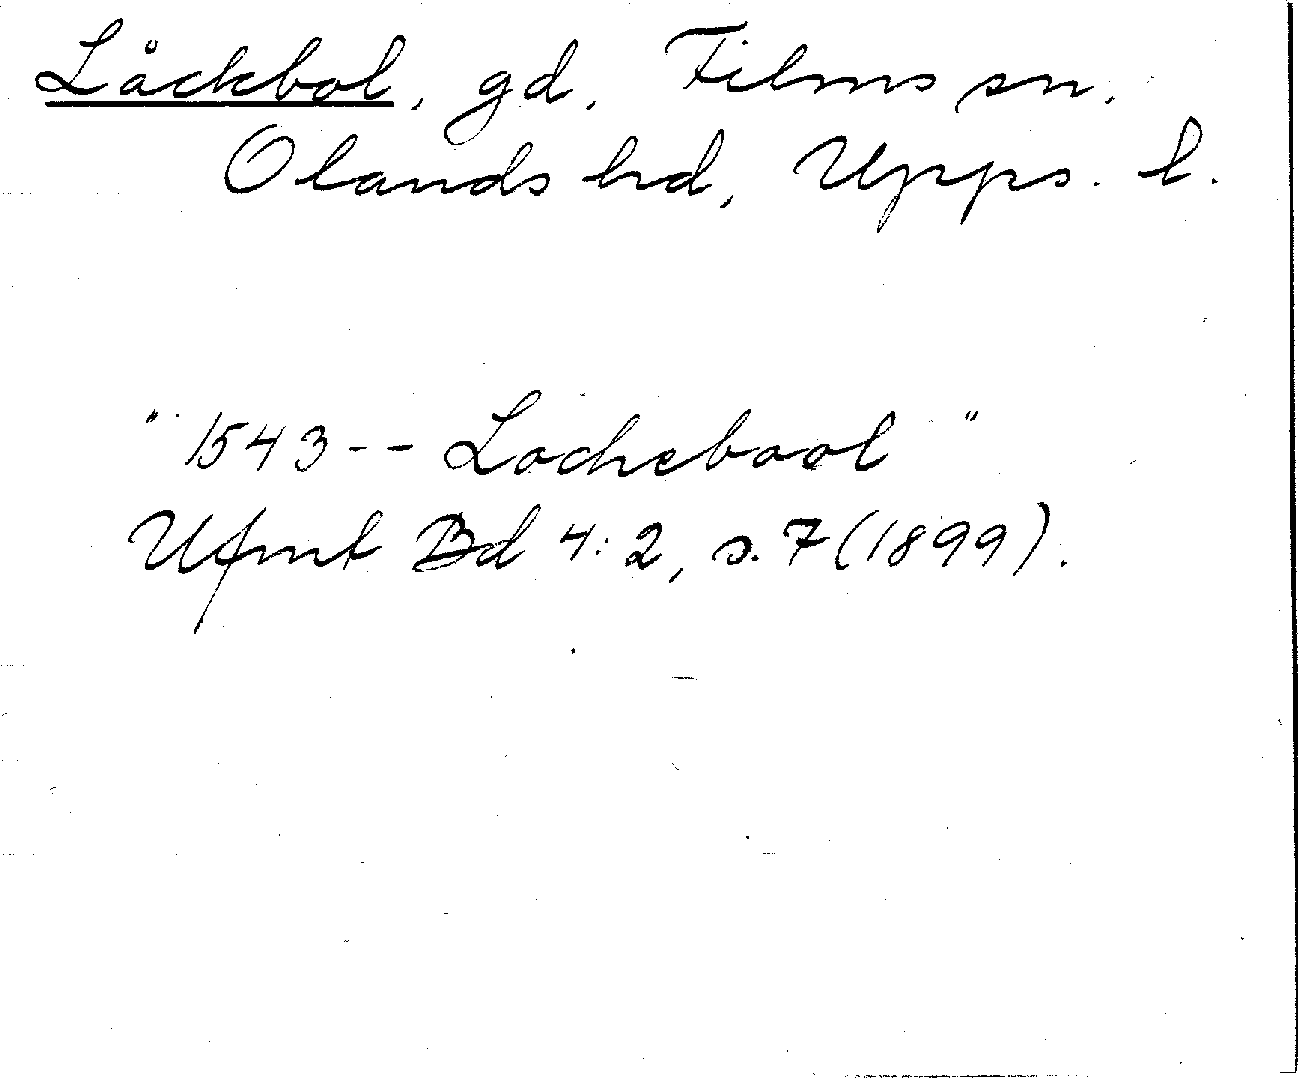 Låckbol, gd, Films sn,
Olands hd, Upps. l.
"1543-- Lochebool"
Ufmt Bd 4:2, s. 7 (1899).